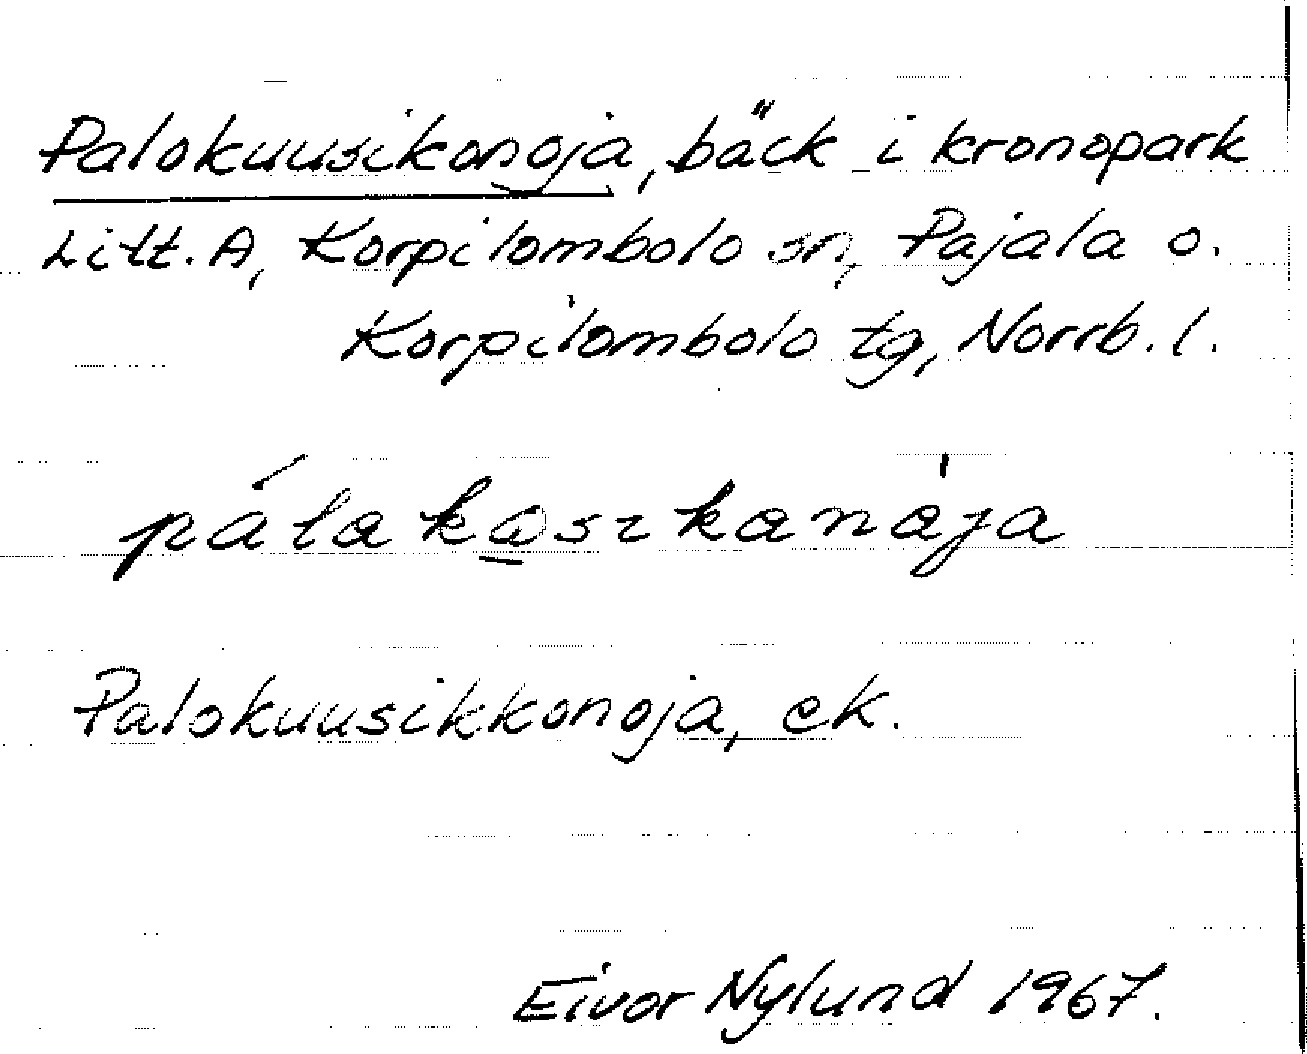 Palokuusikonoja, bäck i kronopark
Litt. A, Korpilombolo sn, Pajala o.
Korpilombolo tg, Norrb. l.
pálakaszkanája
Palokuusikkonoja, ek.
Eivor Nylund 1967.